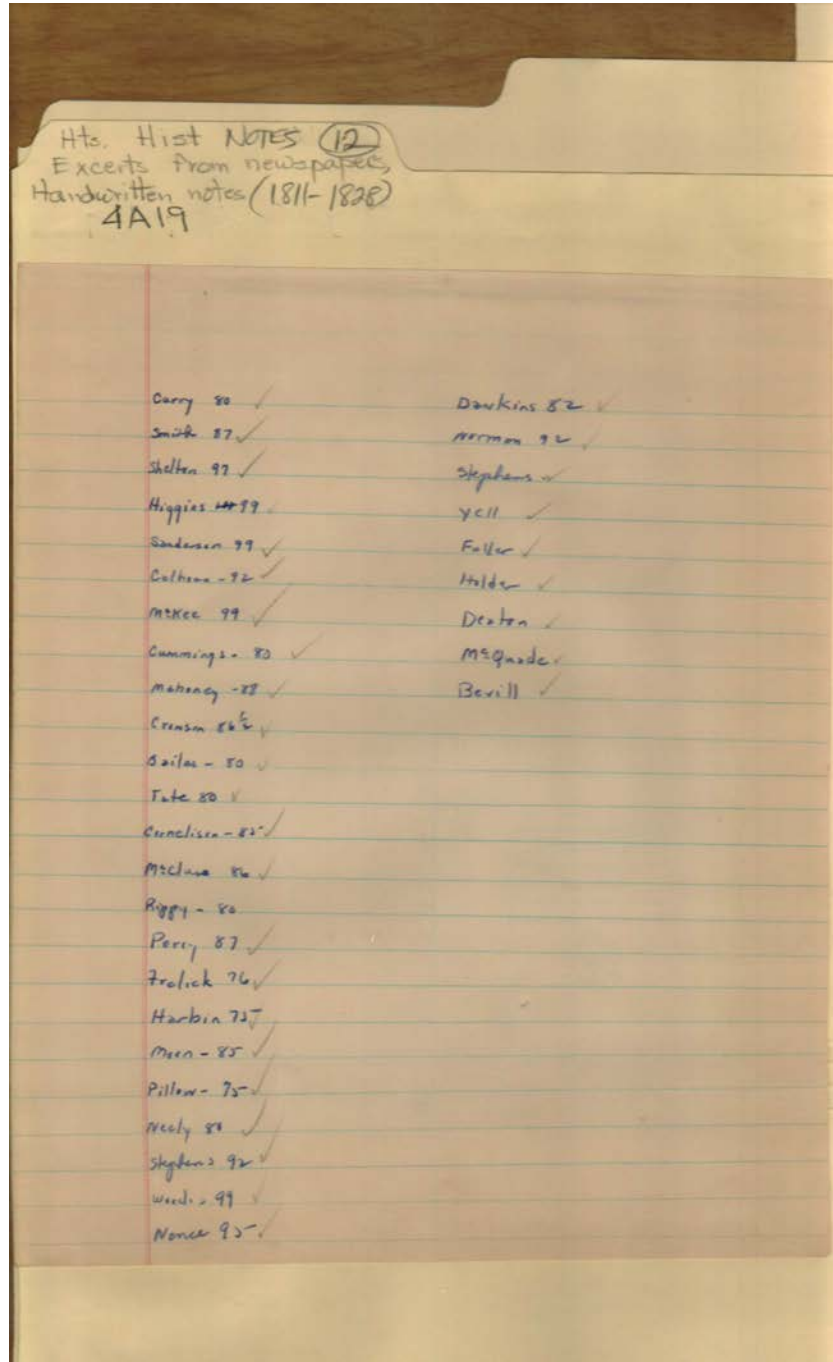 Hts. Hist NOTES (12)
Excerts from newspapers,
Handwritten notes (1811-1828)
4A19
Curry 80 ✓
Smith 87 ✓
Shelton 97 ✓
Higgins 99 ✓
Sanderson 99 ✓
Calhoun - 92 ✓
McKee 99 ✓
Cummings - 80 ✓
Mahoney - 88 ✓
86½ ✓
- 80 ✓
Tate 80 ✓
Cornelison - 85 ✓
McClure 86 ✓
Rippy - 80
Percy 87 ✓
Frolick 76 ✓
Harbin 75 ✓
Moon - 85 ✓
Pillow - 75 ✓
Neely 80 ✓
Stephens 92 ✓
99 ✓
Nance 95 ✓
Dawkins 82 ✓
Norman 92 ✓
Stephens ✓
Yell ✓
Fuller ✓
Holder ✓
Deaton ✓
McQuade ✓
Bevill ✓